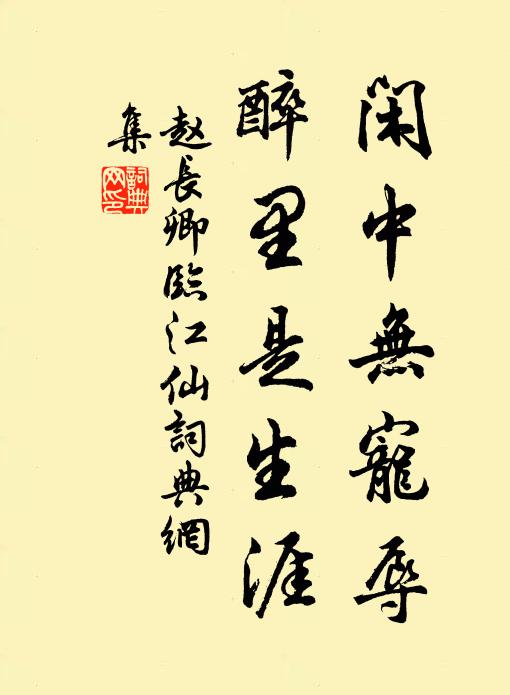 闲中無寵辱
醉里是生涯
赵長卿臨江仙詞典網
集
詞典
网印